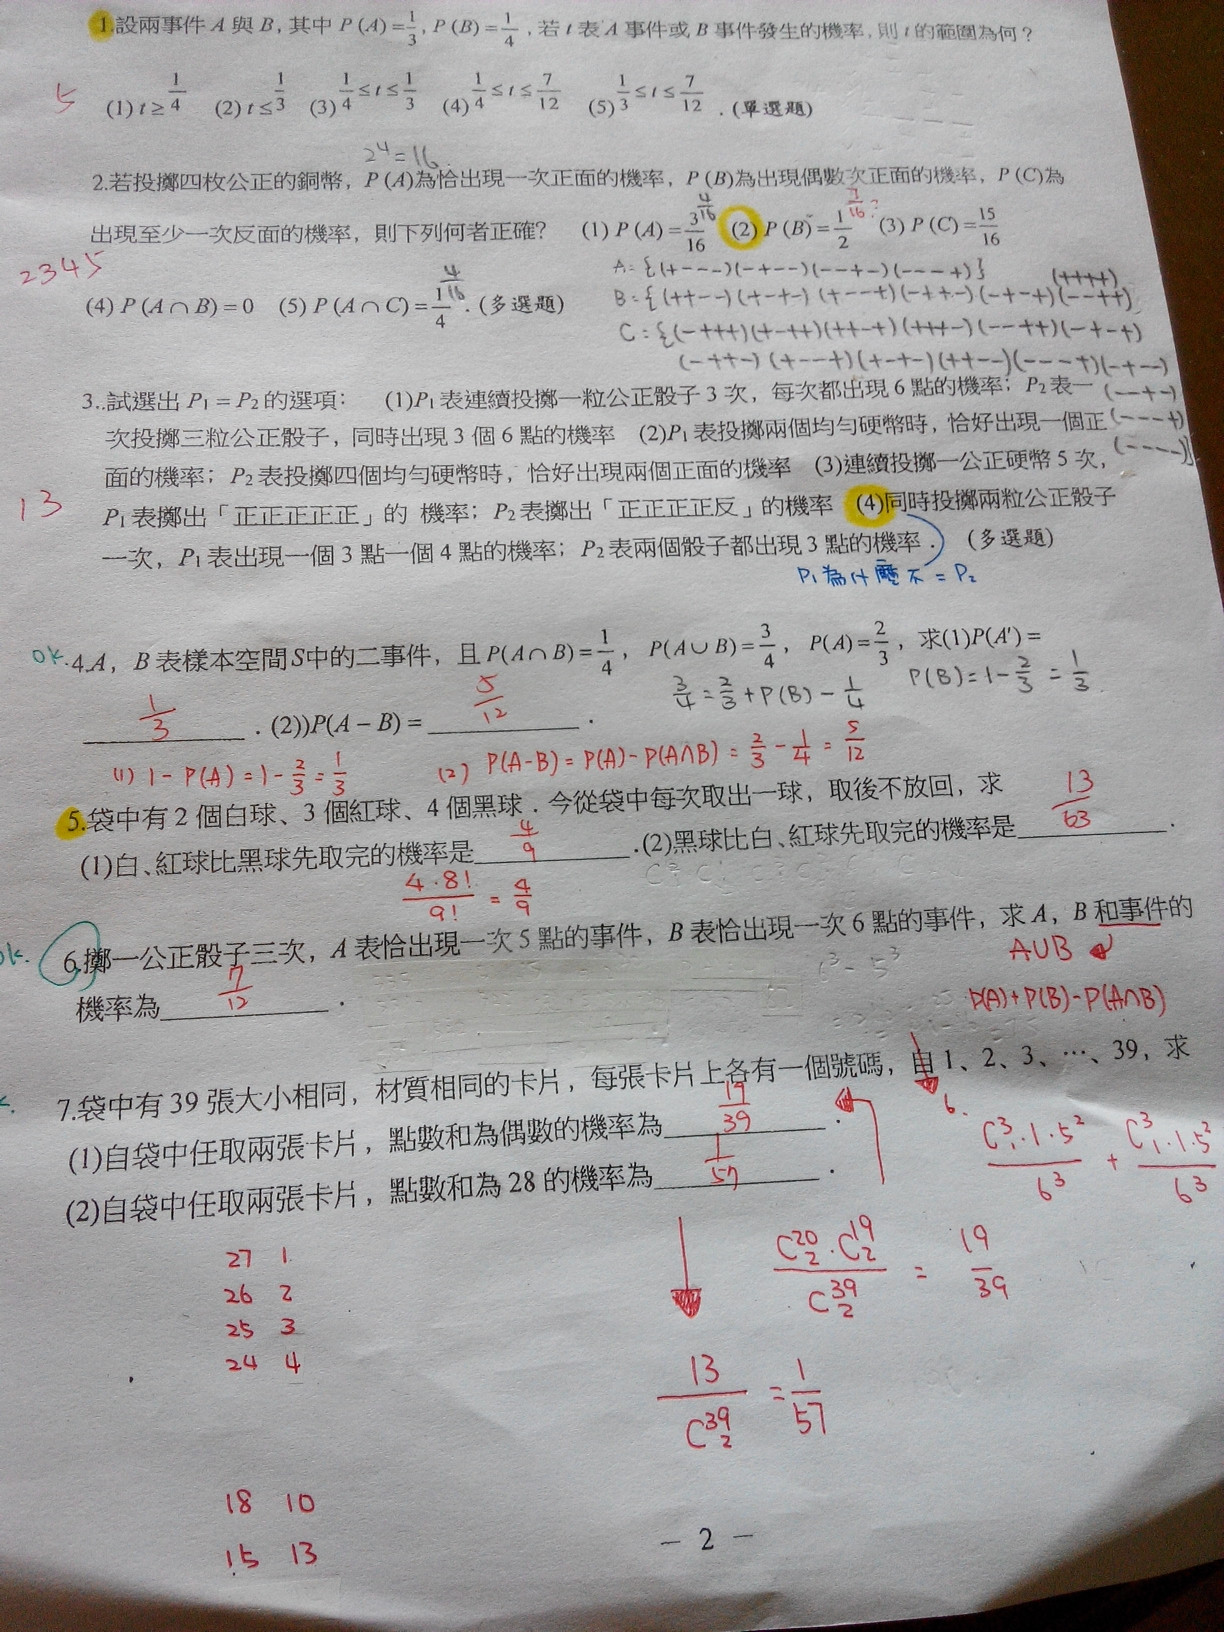 1.設兩事件 A 與 B, 其中 P(A)=1/3, P(B)=1/4, 若 t 表 A 事件或 B 事件發生的機率, 則 t 的範圍為何？
5 (1) t≥1/4 (2) t≤1/3 (3) 1/4≤t≤1/3 (4) 1/4≤t≤7/12 (5) 1/3≤t≤7/12 . (單選題)
2⁴=16
2.若投擲四枚公正的銅幣, P(A)為恰出現一次正面的機率, P(B)為出現偶數次正面的機率, P(C)為
4/16 7/16?
出現至少一次反面的機率, 則下列何者正確? (1) P(A)=3/16 (2) P(B)=1/2 (3) P(C)=15/16
2345
A={(+---)(-+--)(--+-)(---+)} (++++)
4/16
(4) P(A∩B)=0 (5) P(A∩C)=1/4 . (多選題)
B={(++--)(+-+-)(+--+)(-++-)(-+-+)(--++)
C={(-+++)(+-++)(++-+)(+++-)(--++)(-+-+)
(-++-)(+--+)(+-+-)(++--)(---+)(-+--)
(--+-)
(---+)
(----)}
3..試選出 P₁=P₂ 的選項: (1)P₁ 表連續投擲一粒公正骰子 3 次, 每次都出現 6 點的機率; P₂ 表一
次投擲三粒公正骰子, 同時出現 3 個 6 點的機率 (2)P₁ 表投擲兩個均勻硬幣時, 恰好出現一個正
面的機率; P₂ 表投擲四個均勻硬幣時, 恰好出現兩個正面的機率 (3)連續投擲一公正硬幣 5 次,
13 P₁ 表擲出「正正正正正」的 機率; P₂ 表擲出「正正正正反」的機率 (4)同時投擲兩粒公正骰子
一次, P₁ 表出現一個 3 點一個 4 點的機率; P₂ 表兩個骰子都出現 3 點的機率 . (多選題)
P₁為什麼不=P₂
ok.4.A, B 表樣本空間S中的二事件, 且 P(A∩B)=1/4, P(A∪B)=3/4, P(A)=2/3, 求(1)P(A')=
3/4=2/3+P(B)-1/4 P(B)=1-2/3=1/3
1/3 . (2))P(A-B)= 5/12 .
(1) 1-P(A)=1-2/3=1/3 (2) P(A-B)=P(A)-P(A∩B)=2/3-1/4=5/12
5.袋中有 2 個白球、3 個紅球、4 個黑球 . 今從袋中每次取出一球, 取後不放回, 求
(1)白、紅球比黑球先取完的機率是 4/9 .(2)黑球比白、紅球先取完的機率是 13/63 .
4·8!/9! = 4/9
ok. 6.擲一公正骰子三次, A 表恰出現一次 5 點的事件, B 表恰出現一次 6 點的事件, 求 A, B 和事件的
A∪B
6³-5³
機率為 7/12 .
P(A)+P(B)-P(A∩B)
7.袋中有 39 張大小相同, 材質相同的卡片, 每張卡片上各有一個號碼, 自 1、2、3、…、39, 求
(1)自袋中任取兩張卡片, 點數和為偶數的機率為 19/39 .
6. C³₁·1·5²/6³ + C³₁·1·5²/6³
(2)自袋中任取兩張卡片, 點數和為 28 的機率為 1/57 .
C²⁰₂·C¹⁹₂/C³⁹₂ = 19/39
27 1
26 2
25 3
24 4
13/C³⁹₂ = 1/57
18 10
15 13
- 2 -